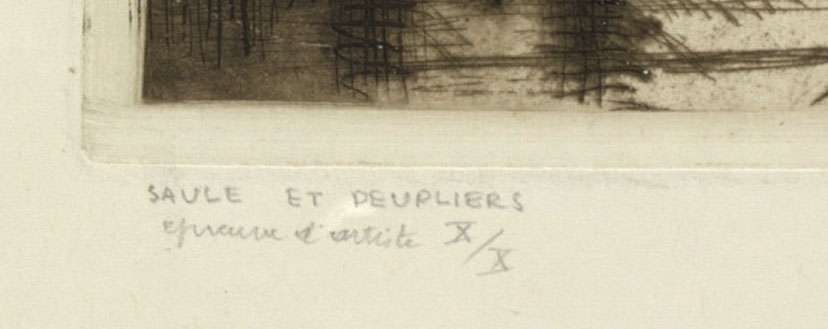 SAULE ET PEUPLIERS
épreuve d'artiste X/X